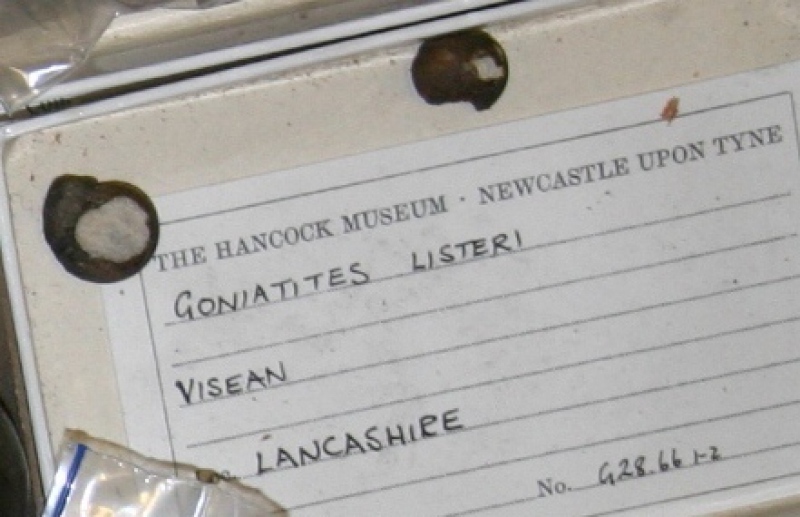 THE HANCOCK MUSEUM · NEWCASTLE UPON TYNE
GONIATITES LISTERI
VISEAN
LANCASHIRE
No. G28.66 1-2